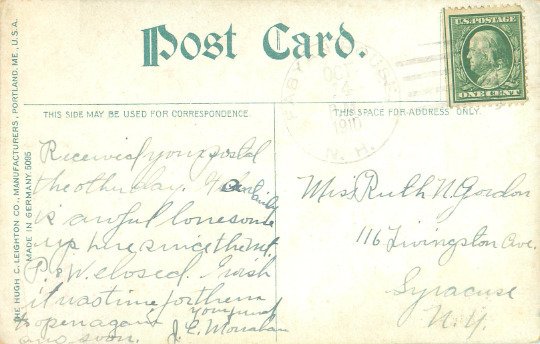 Post Card.
U.S. POSTAGE
ONE CENT
OCT
4
1910
N. H.
THIS SIDE MAY BE USED FOR CORRESPONDENCE.
THIS SPACE FOR ADDRESS ONLY.
THE HUGH C. LEIGHTON CO., MANUFACTURERS, PORTLAND, ME., U.S.A.
MADE IN GERMANY 5085
Received your postal
the other day.
is awful lonesome
up here since the Mt.
P. & W. closed. I wish
it was time for them
to open again
and soon.
Yours
J. C. Monahan
Miss Ruth N. Gordon
116 Livingston Ave.
Syracuse
N. Y.